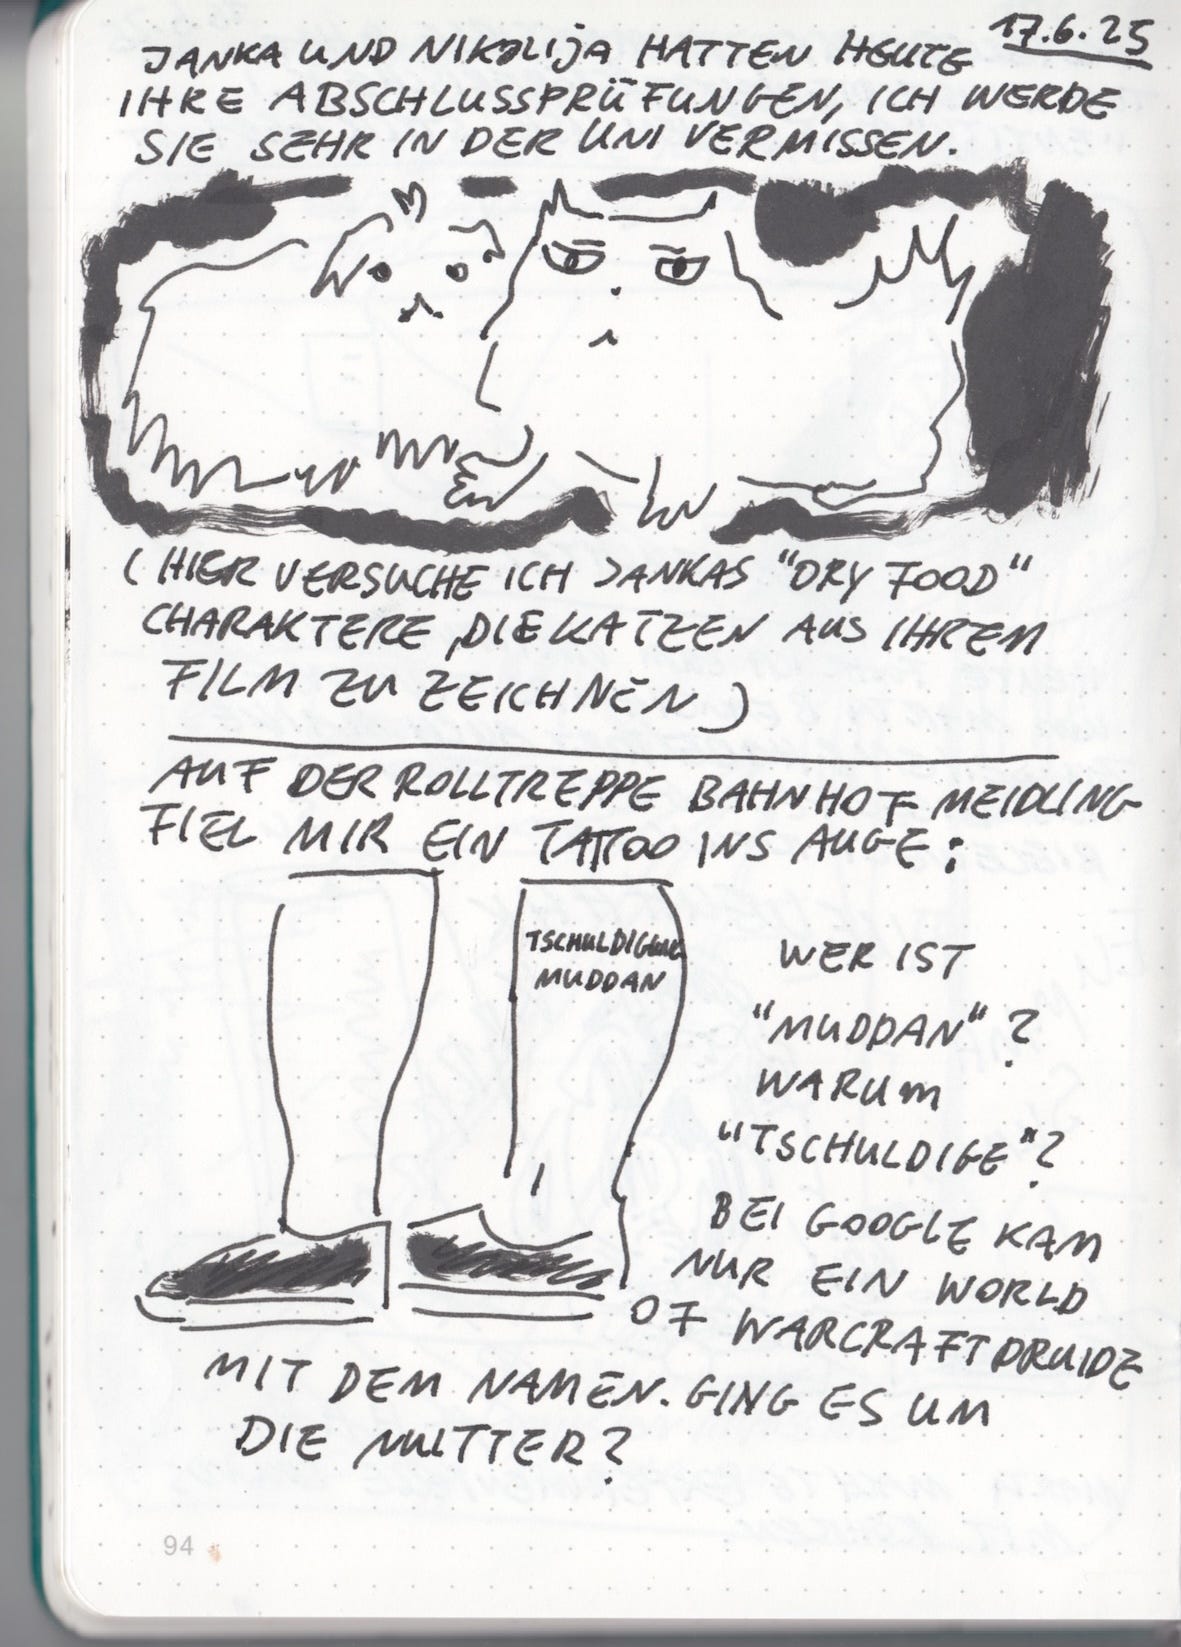 17.6.25
JANKA UND NIKOLIJA HATTEN HEUTE
IHRE ABSCHLUSSPRÜFUNGEN, ICH WERDE
SIE SEHR IN DER UNI VERMISSEN.
(HIER VERSUCHE ICH JANKAS "DRY FOOD"
CHARAKTERE, DIE KATZEN AUS IHREM
FILM ZU ZEICHNEN)
AUF DER ROLLTREPPE BAHNHOF MEIDLING
FIEL MIR EIN TATTOO INS AUGE:
TSCHULDIGUNG
MUDDAN
WER IST
"MUDDAN"?
WARUM
"TSCHULDIGE"?
BEI GOOGLE KAM
NUR EIN WORLD
OF WARCRAFT DRUIDE
MIT DEM NAMEN. GING ES UM
DIE MUTTER?
94